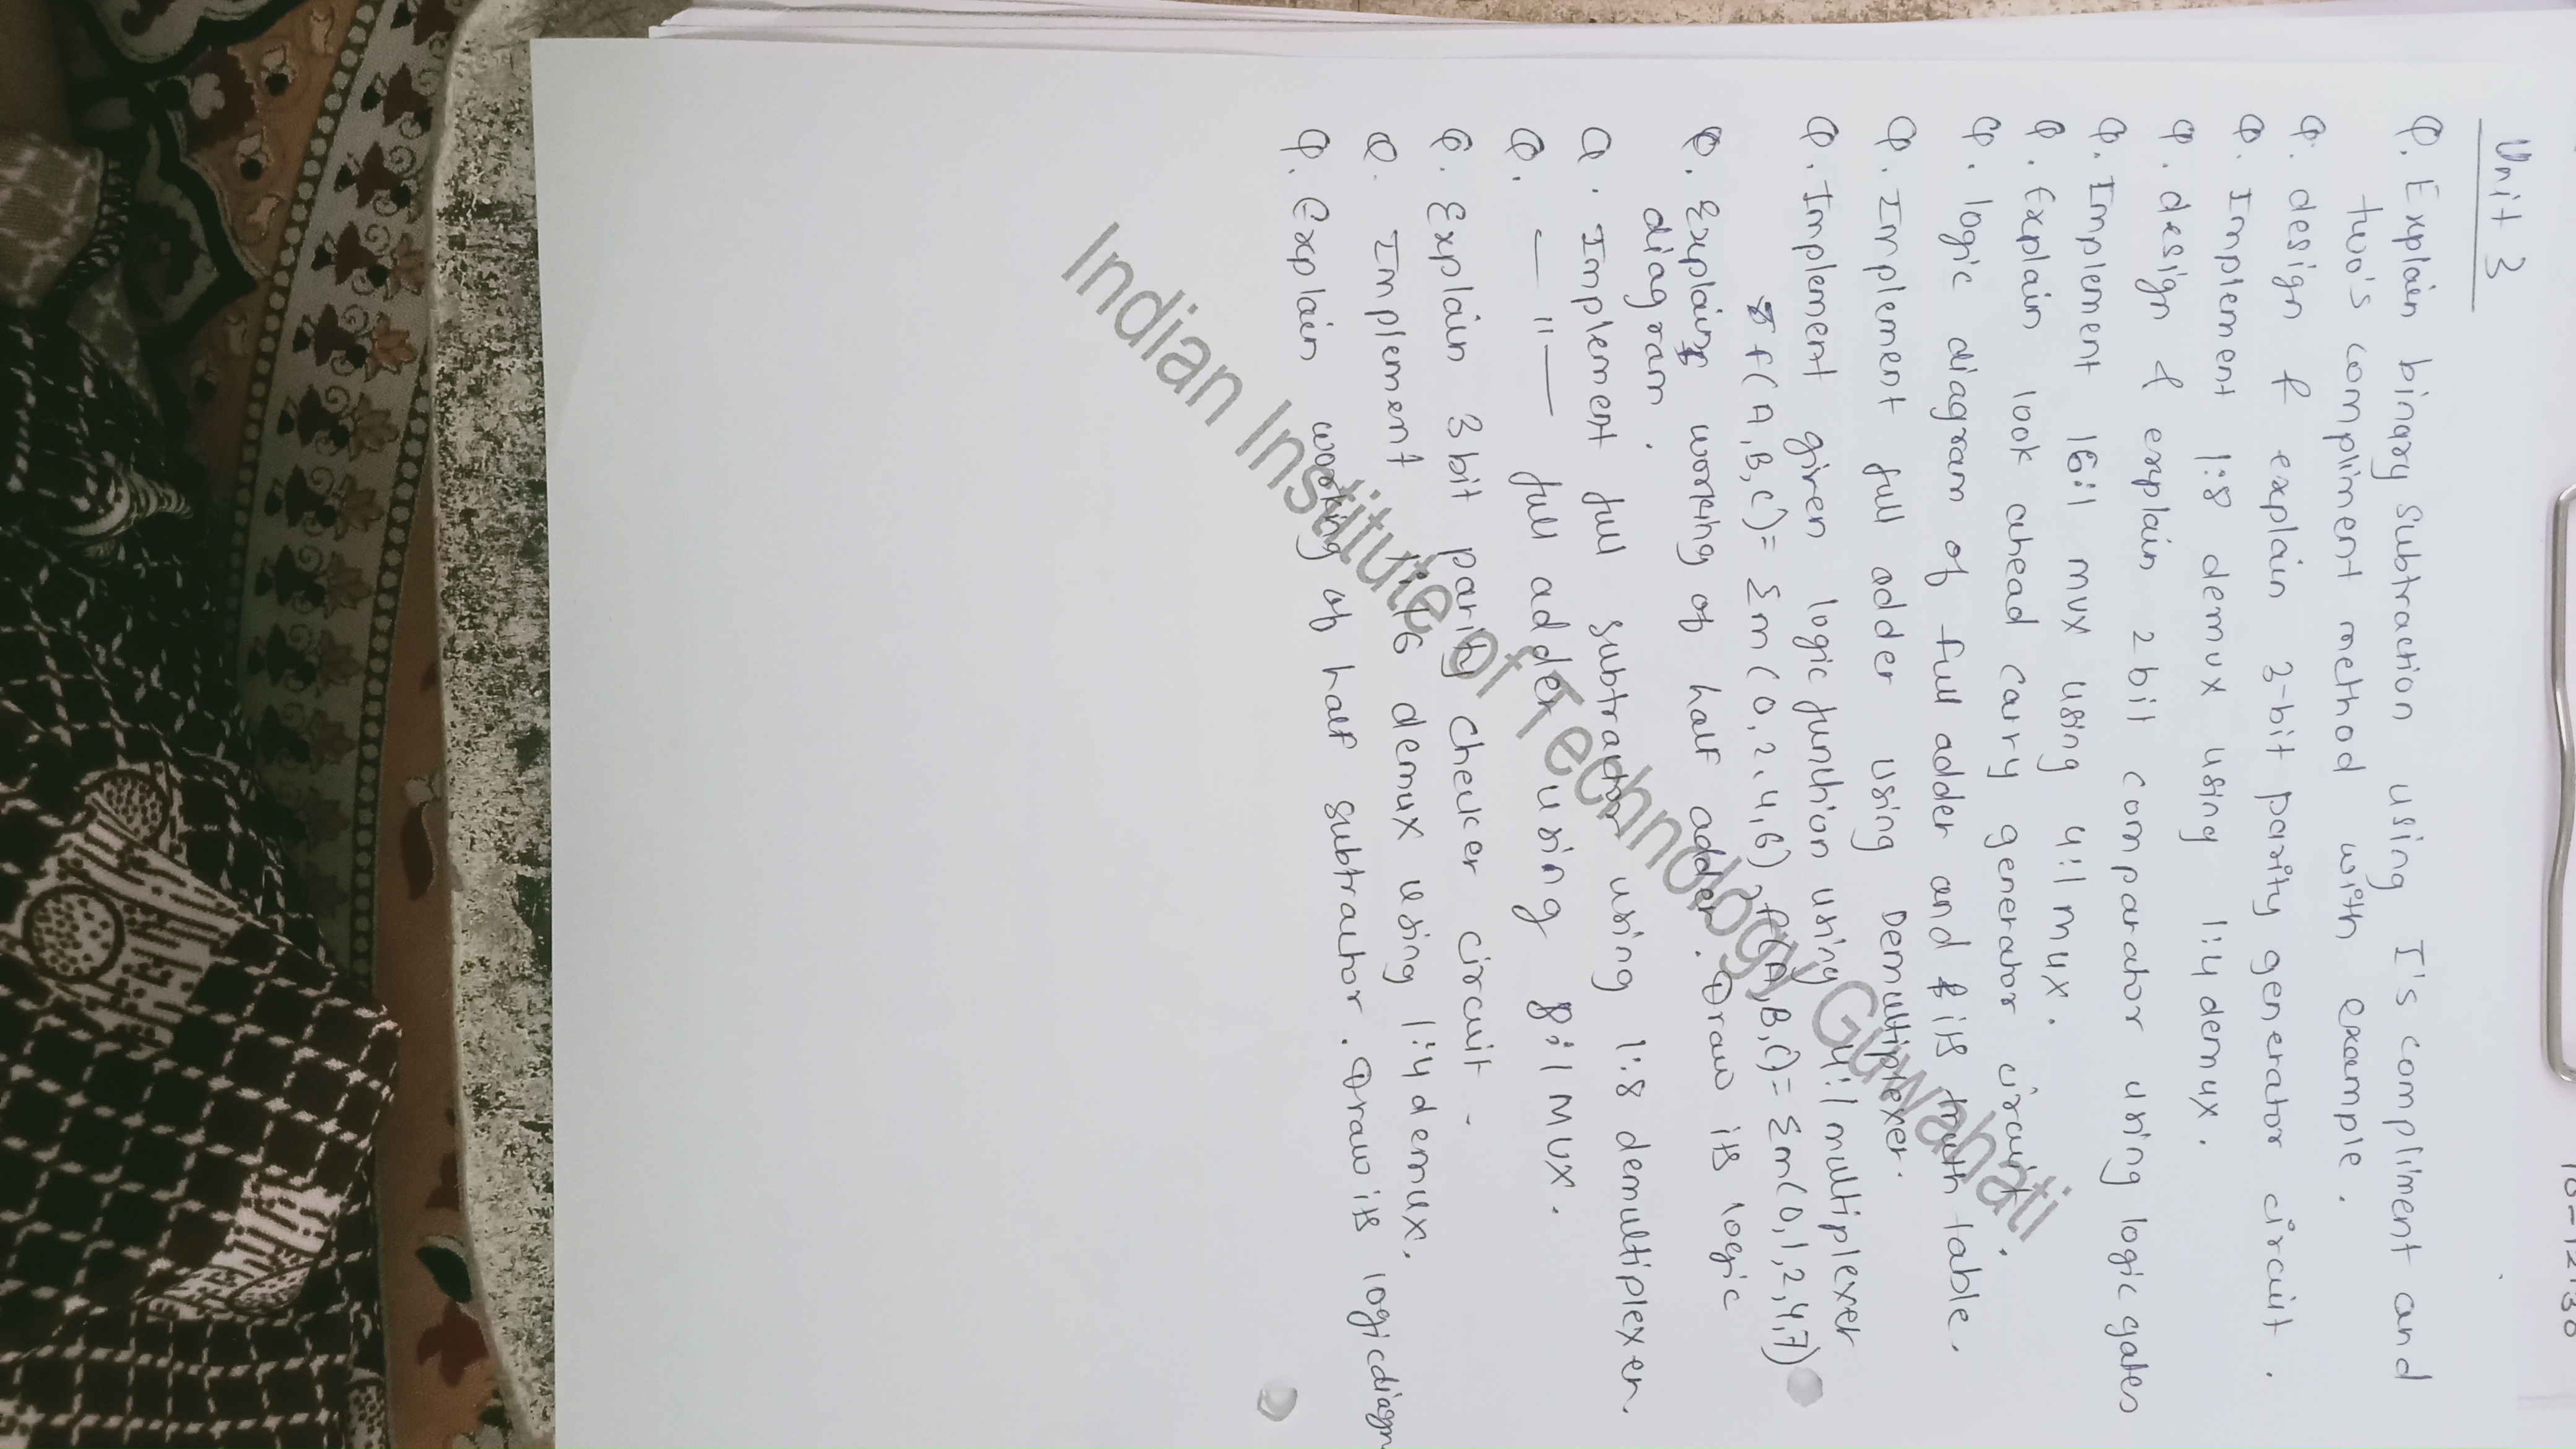 Unit 3
Q. Explain binary subtraction using 1's compliment and
two's compliment method with example.
Q. design & explain 3-bit parity generator circuit.
Q. Implement 1:8 demux using 1:4 demux.
Q. design & explain 2 bit comparator using logic gates
Q. Implement 16:1 mux using 4:1 mux.
Q. Explain look ahead carry generator circuit.
Q. logic diagram of full adder and its truth table.
Q. Implement full adder using Demultiplexer.
Q. Implement given logic function using 4:1 multiplexer
f(A,B,C)= Σm(0,2,4,6) 2 f(A,B,C)= Σm(0,1,2,4,7)
Q. Explain working of half adder. Draw its logic
diagram.
Q. Implement full subtractor using 1:8 demultiplexer.
Q. —"— full adder using 8:1 MUX.
Q. Explain 3 bit parity checker circuit.
Q. Implement 1:16 demux using 1:4 demux.
Q. Explain working of half subtractor. Draw its logic diagm
Indian Institute of Technology Guwahati